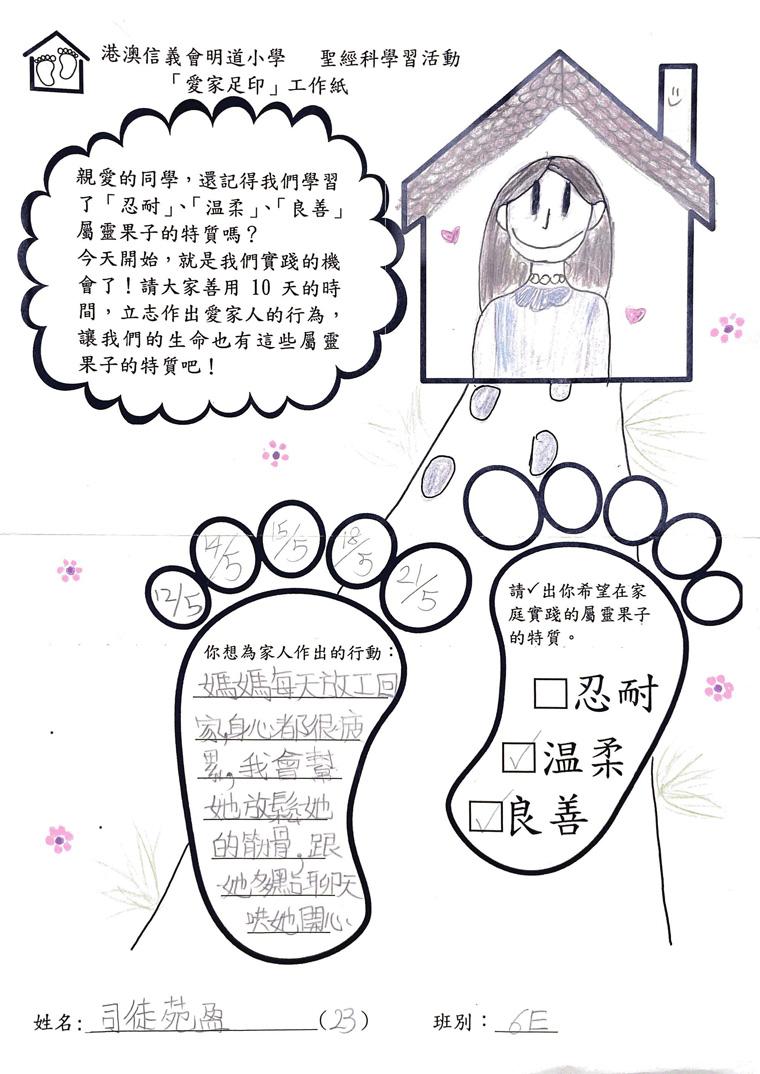 港澳信義會明道小學 聖經科學習活動
「愛家足印」工作紙
親愛的同學，還記得我們學習
了「忍耐」、「溫柔」、「良善」
屬靈果子的特質嗎？
今天開始，就是我們實踐的機
會了！請大家善用 10 天的時
間，立志作出愛家人的行為，
讓我們的生命也有這些屬靈
果子的特質吧！
12/5
14/5
15/5
18/5
21/5
你想為家人作出的行動：
媽媽每天放工回
家,身心都很疲
累,我會幫
她放鬆她
的筋骨,跟
她多點聊天
哄她開心
請✓出你希望在家
庭實踐的屬靈果子
的特質。
☐忍耐
☑溫柔
☑良善
姓名: 司徒苑盈 (23) 班別： 6E